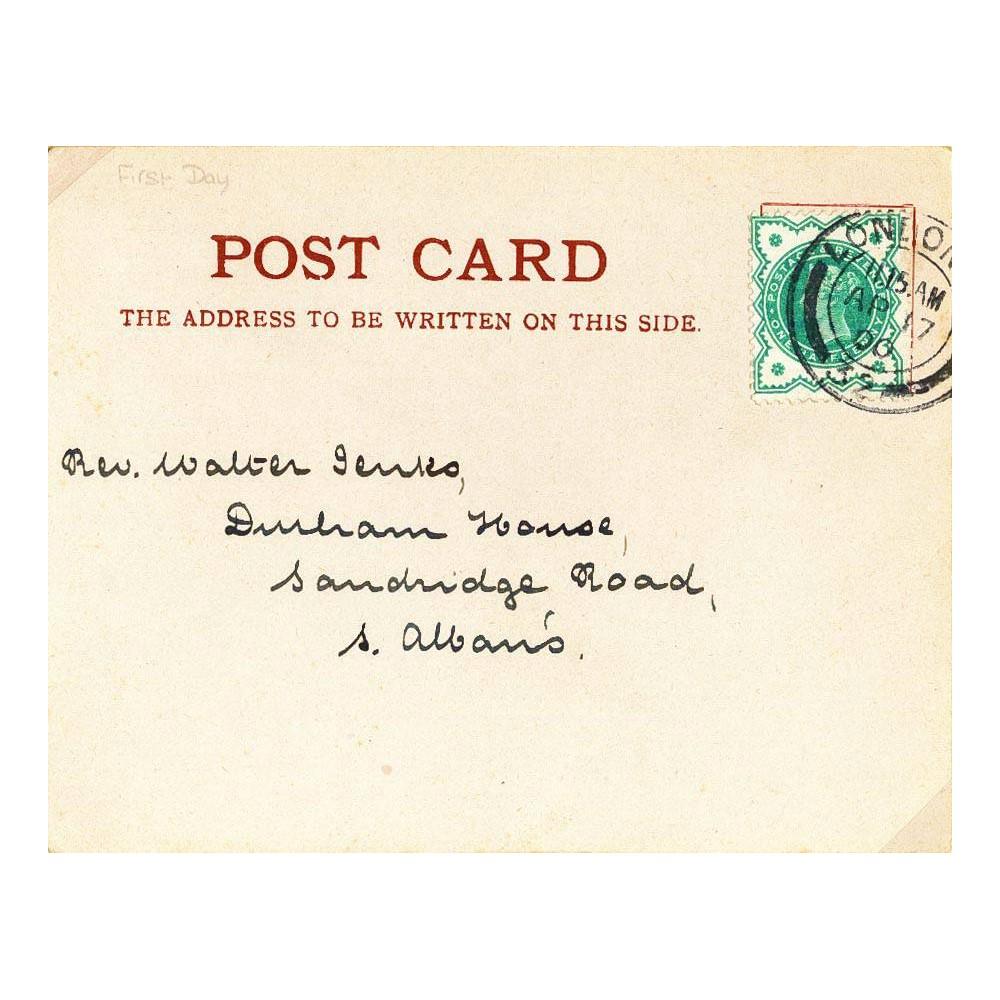 First Day
POST CARD
THE ADDRESS TO BE WRITTEN ON THIS SIDE.
LONDON
11.15.AM
AP 17
00
32
Rev. Walter Jenks,
Durham House,
Sandridge Road,
S. Alban's.